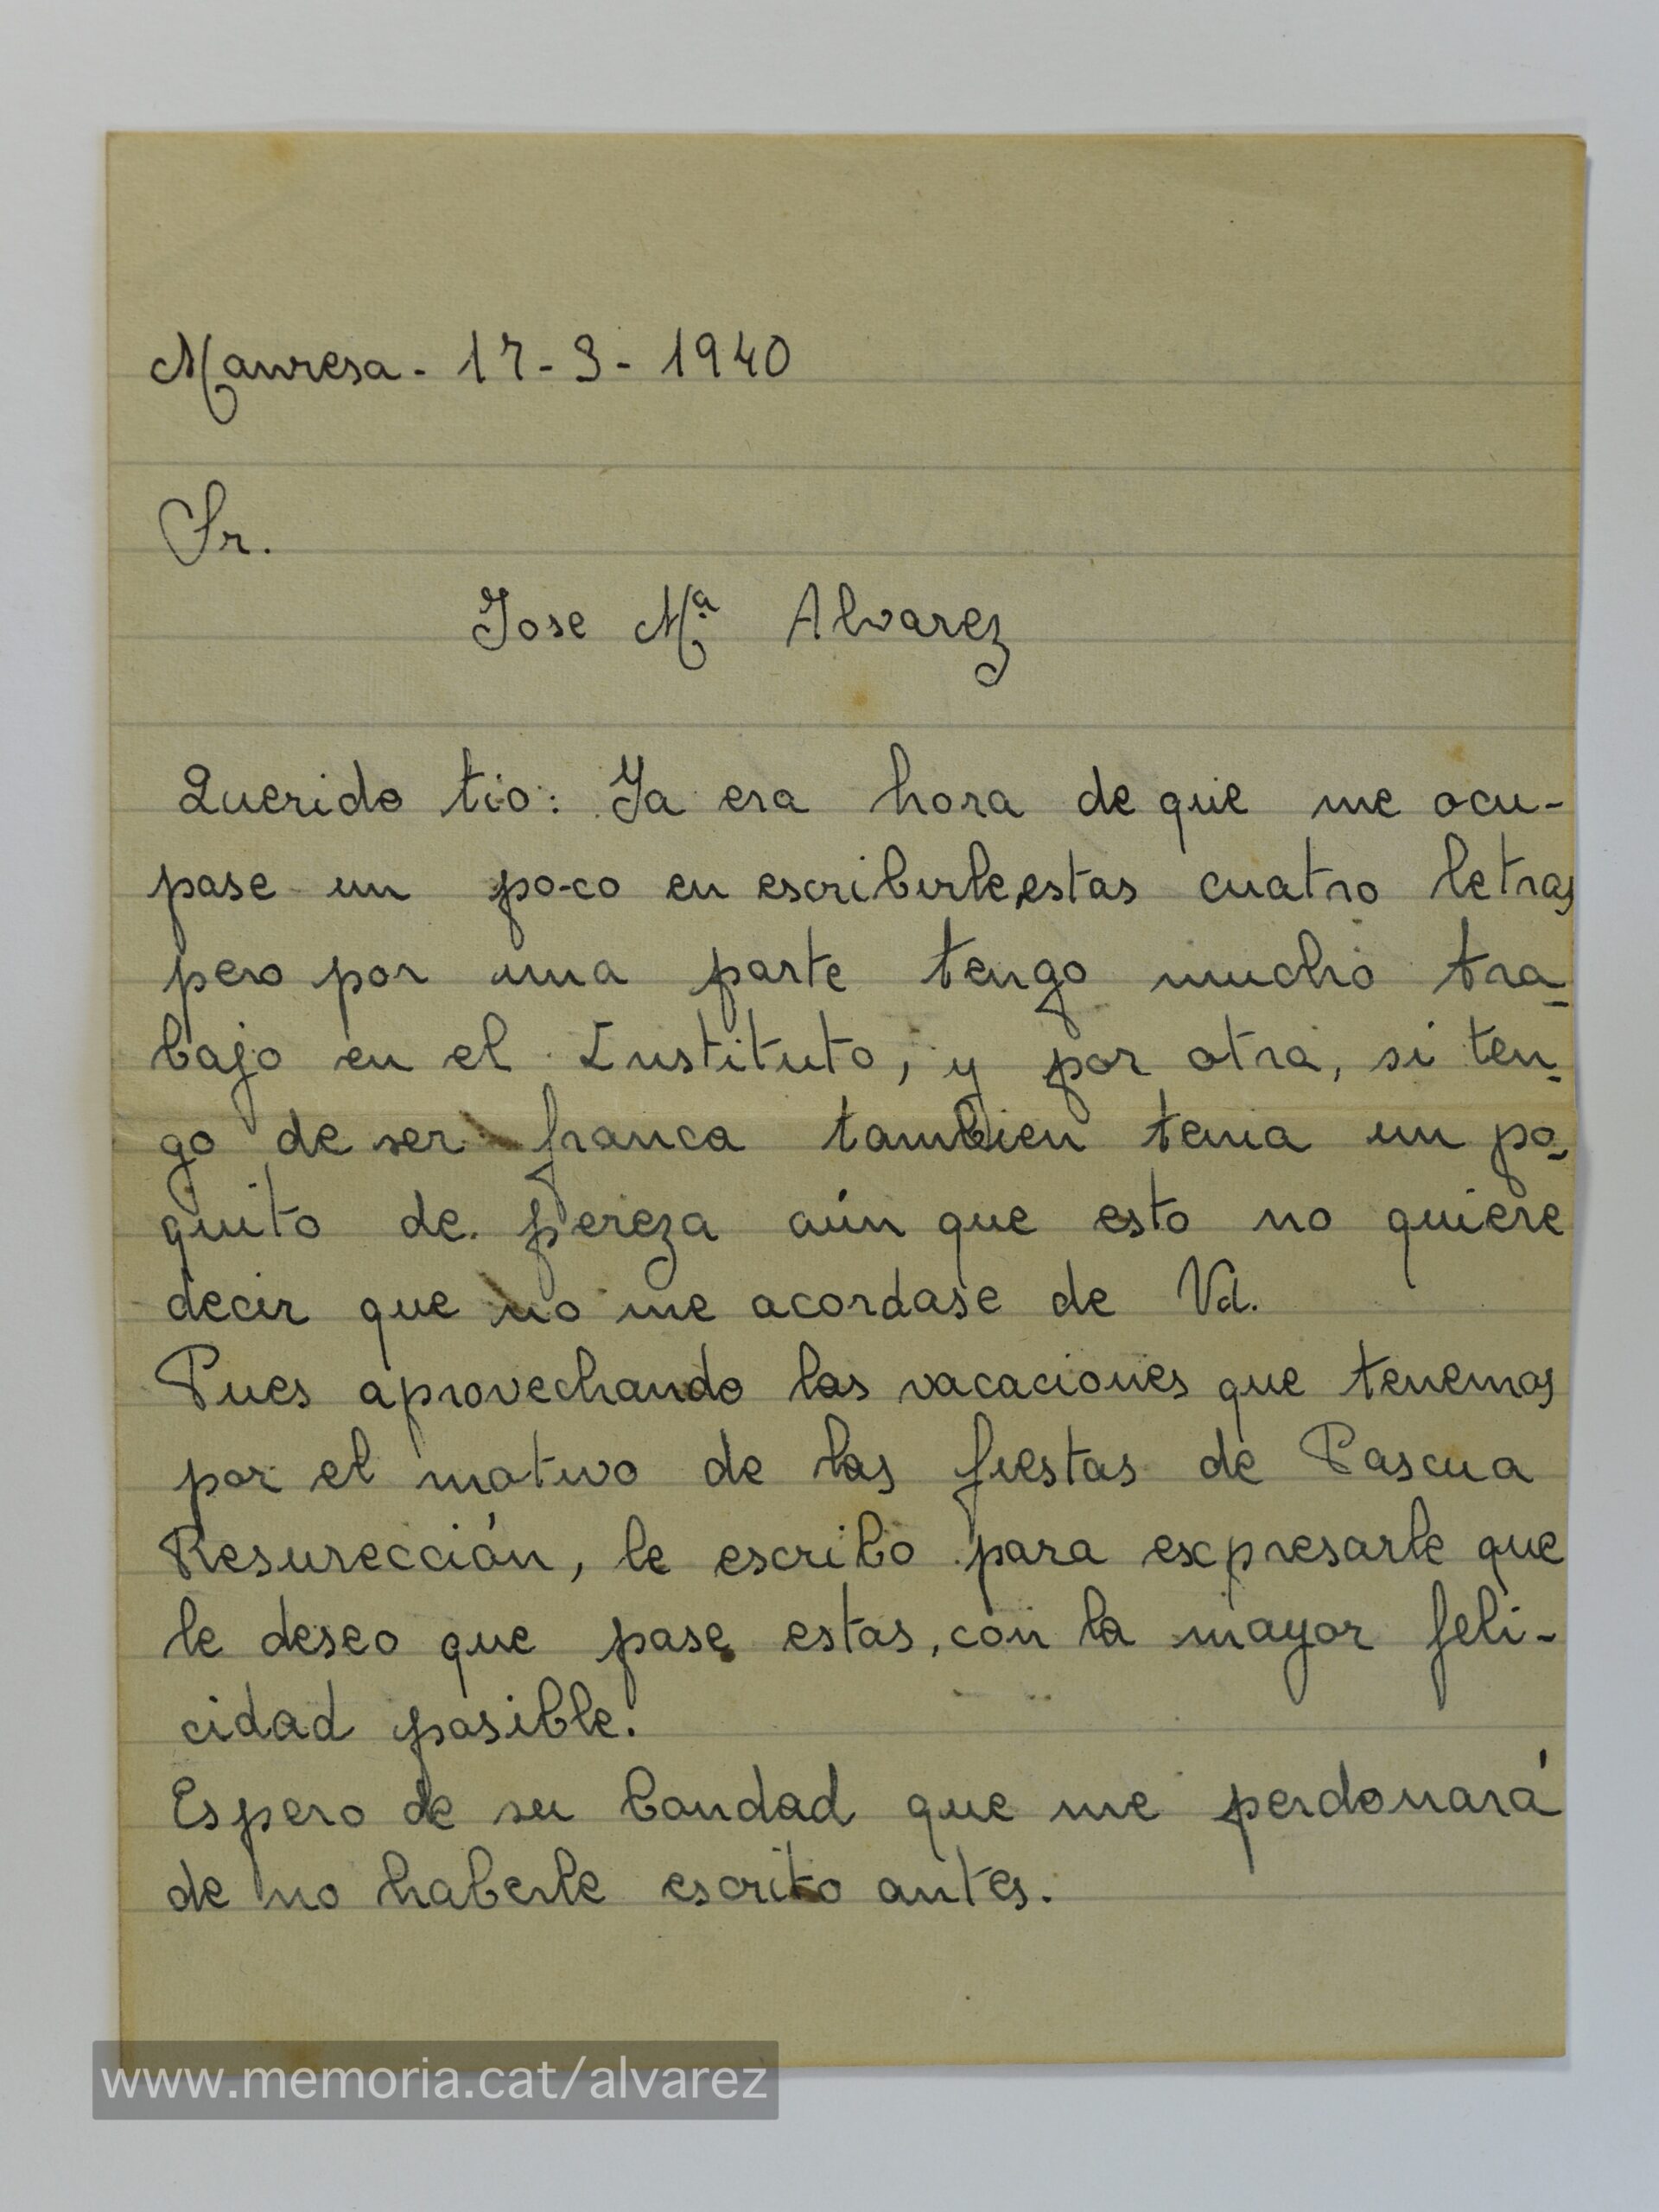 Manresa - 17 - 3 - 1940
Sr.
Jose Mª Alvarez
Querido tio: Ya era hora de que me ocu-
pase un po-co en escribirle estas cuatro letras
pero por una parte tengo mucho tra-
bajo en el Instituto, y por otra, si ten-
go de ser franca tambien tenia un po-
quito de pereza aún que esto no quiere
decir que no me acordase de Vd.
Pues aprovechando las vacaciones que tenemos
por el motivo de las fiestas de Pascua
Resurección, le escribo para expresarle que
le deseo que pase estas, con la mayor feli-
cidad posible.
Espero de su bondad que me perdonará
de no haberle escrito antes.
www.memoria.cat/alvarez